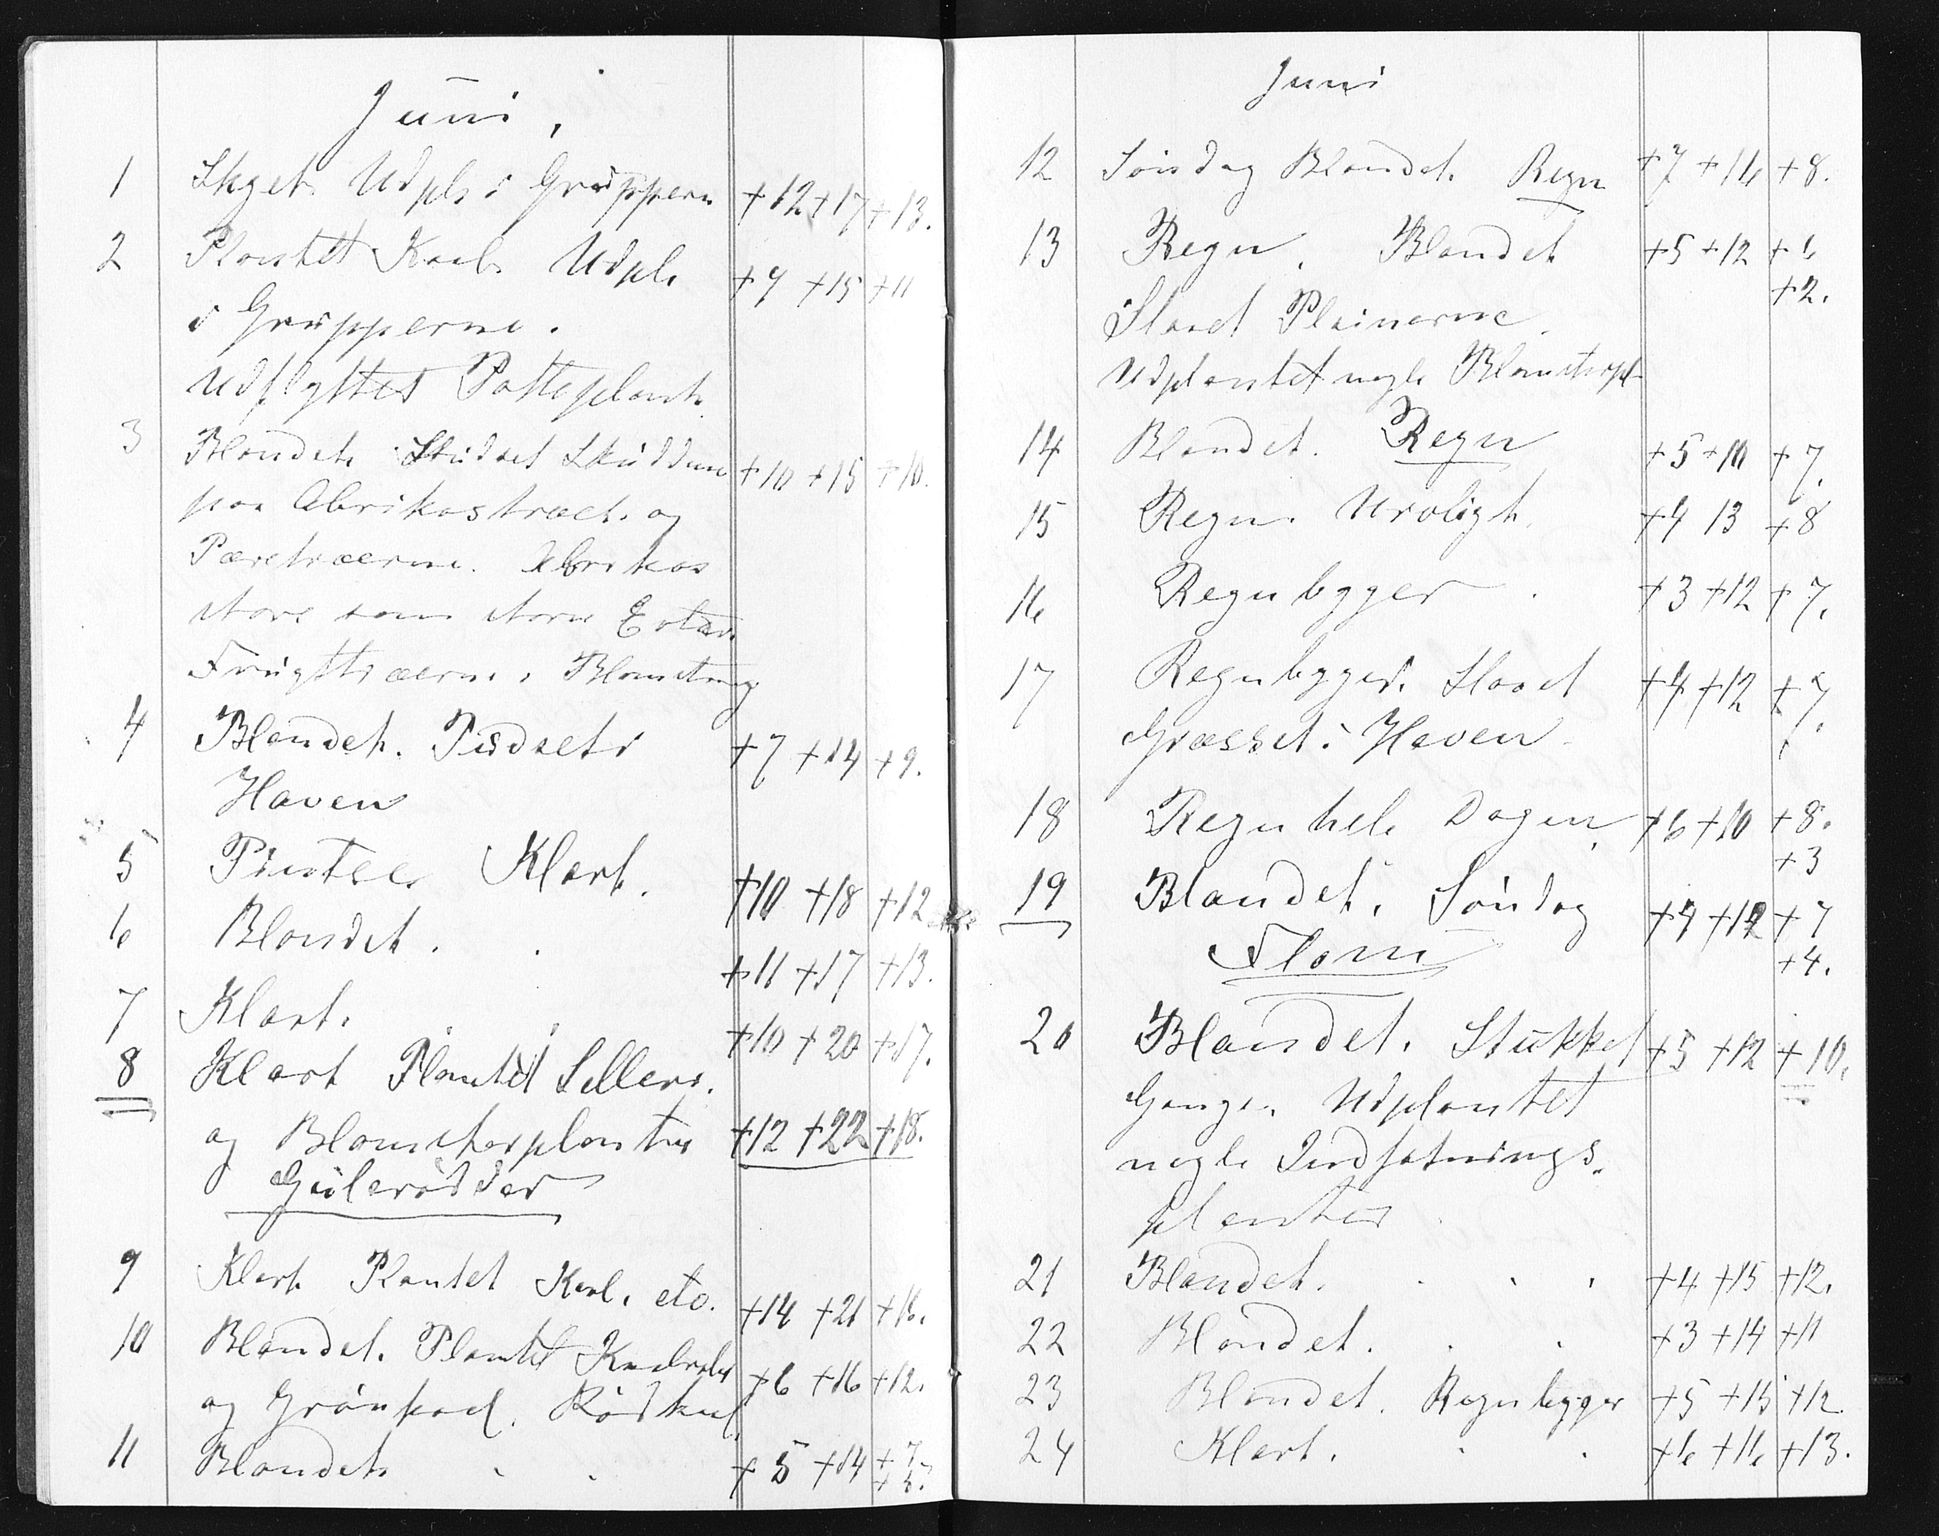 Juni.
1 Skyet. Udpl. i Gruppern +12 +17 +13.
2 Plantet Kaal. Udpl. +9 +15 +11
i Grupperne.
Udflyttet Potteplant.
3 Blandet. Studset Skuddene +10 +15 +10.
paa Abrikostræet og
Pæretræerne. Abrikos
store som store Erter.
Frugttræerne i Blomstring
4 Blandet. Pudset i +7 +14 +9.
Haven
5 Pintse. Klart. +10 +18 +12
6 Blandet. +11 +17 +13.
7 Klart. +10 +20 +17.
8 Klart Plantet Selleri.
og Blomsterplanter +12 +22 +18.
Gulerødder
9 Klart Plantet Kaal. etc. +14 +21 +16.
10 Blandet. Plantet Knulrabi +6 +16 +12.
og Grønkaal. Rødkaal.
11 Blandet. +5 +14 +7
+5?
Juni
12 Søndag Blandet. Regn +7 +16 +8.
13 Regn. Blandet +5 +12 +6
+2.
Slaaet Plainerne.
Udplantet nogle Blomsterpl.
14 Blandet. Regn +5 +10 +7.
15 Regn. Uroligt. +4 13 +8
16 Regnbyger. +3 +12 +7.
17 Regnbyger. Slaaet +4 +12 +7.
Græsset i Haven.
18 Regn hele Dagen, +6 +10 +8.
+3
19 Blandet. Søndag +4 +12 +7
Flom +4.
20 Blandet. Stukket +5 +12 +10.
Gange. Udplantet
nogle Indfatnings-
planter.
21 Blandet. +4 +15 +12.
22 Blandet. +3 +14 +11
23 Blandet. Regnbyger +5 +15 +12
24 Klart. +6 +16 +13.